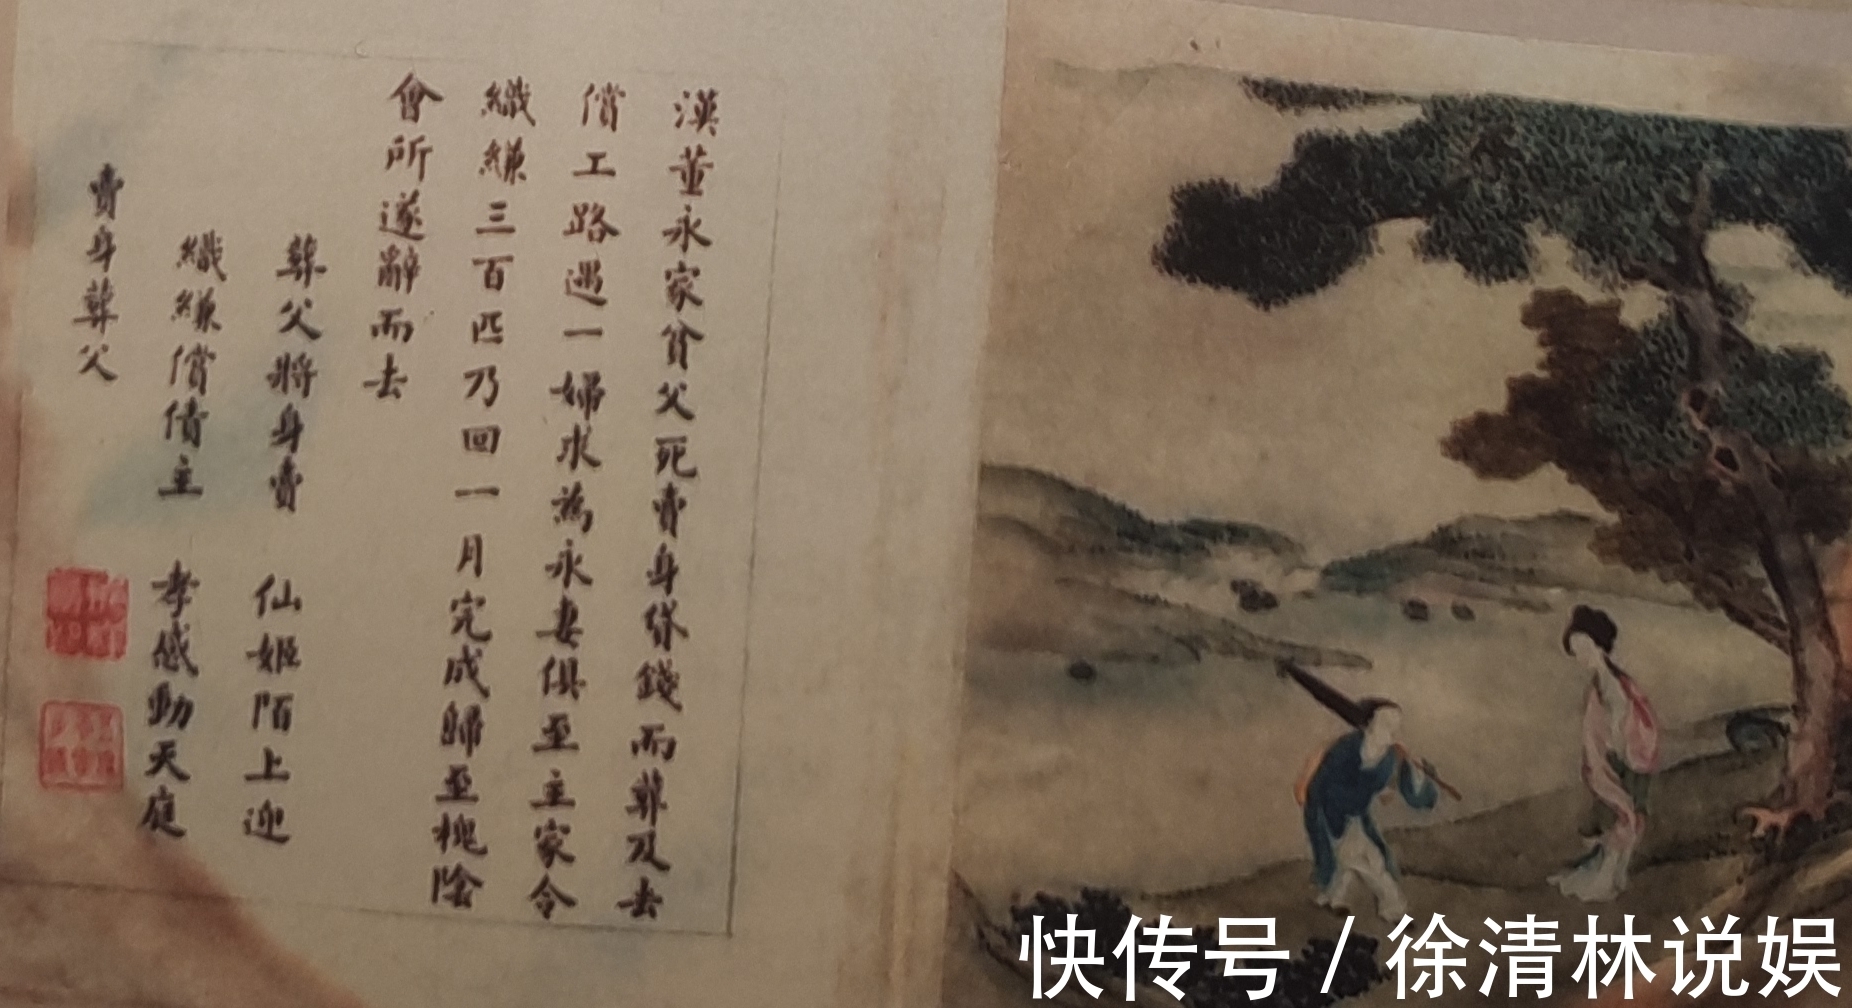 漢董永家貧父死賣身貸錢而葬及去
償工路遇一婦求為永妻俱至主家令
織縑三百匹乃回一月完成歸至槐陰
會所遂辭而去
葬父將身賣 仙姬陌上迎
織縑償債主 孝感動天庭
賣身葬父
快传号/徐清林说娱